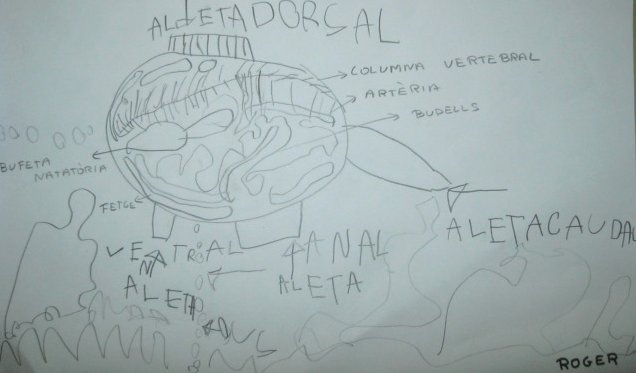 ALETA DORSAL
COLUMNA VERTEBRAL
ARTÈRIA
BUDELLS
BUFETA
NATATÒRIA
FETGE
VENTRAL
ALETA
ANAL
ALETA
ALETACAUDAL
ROGER